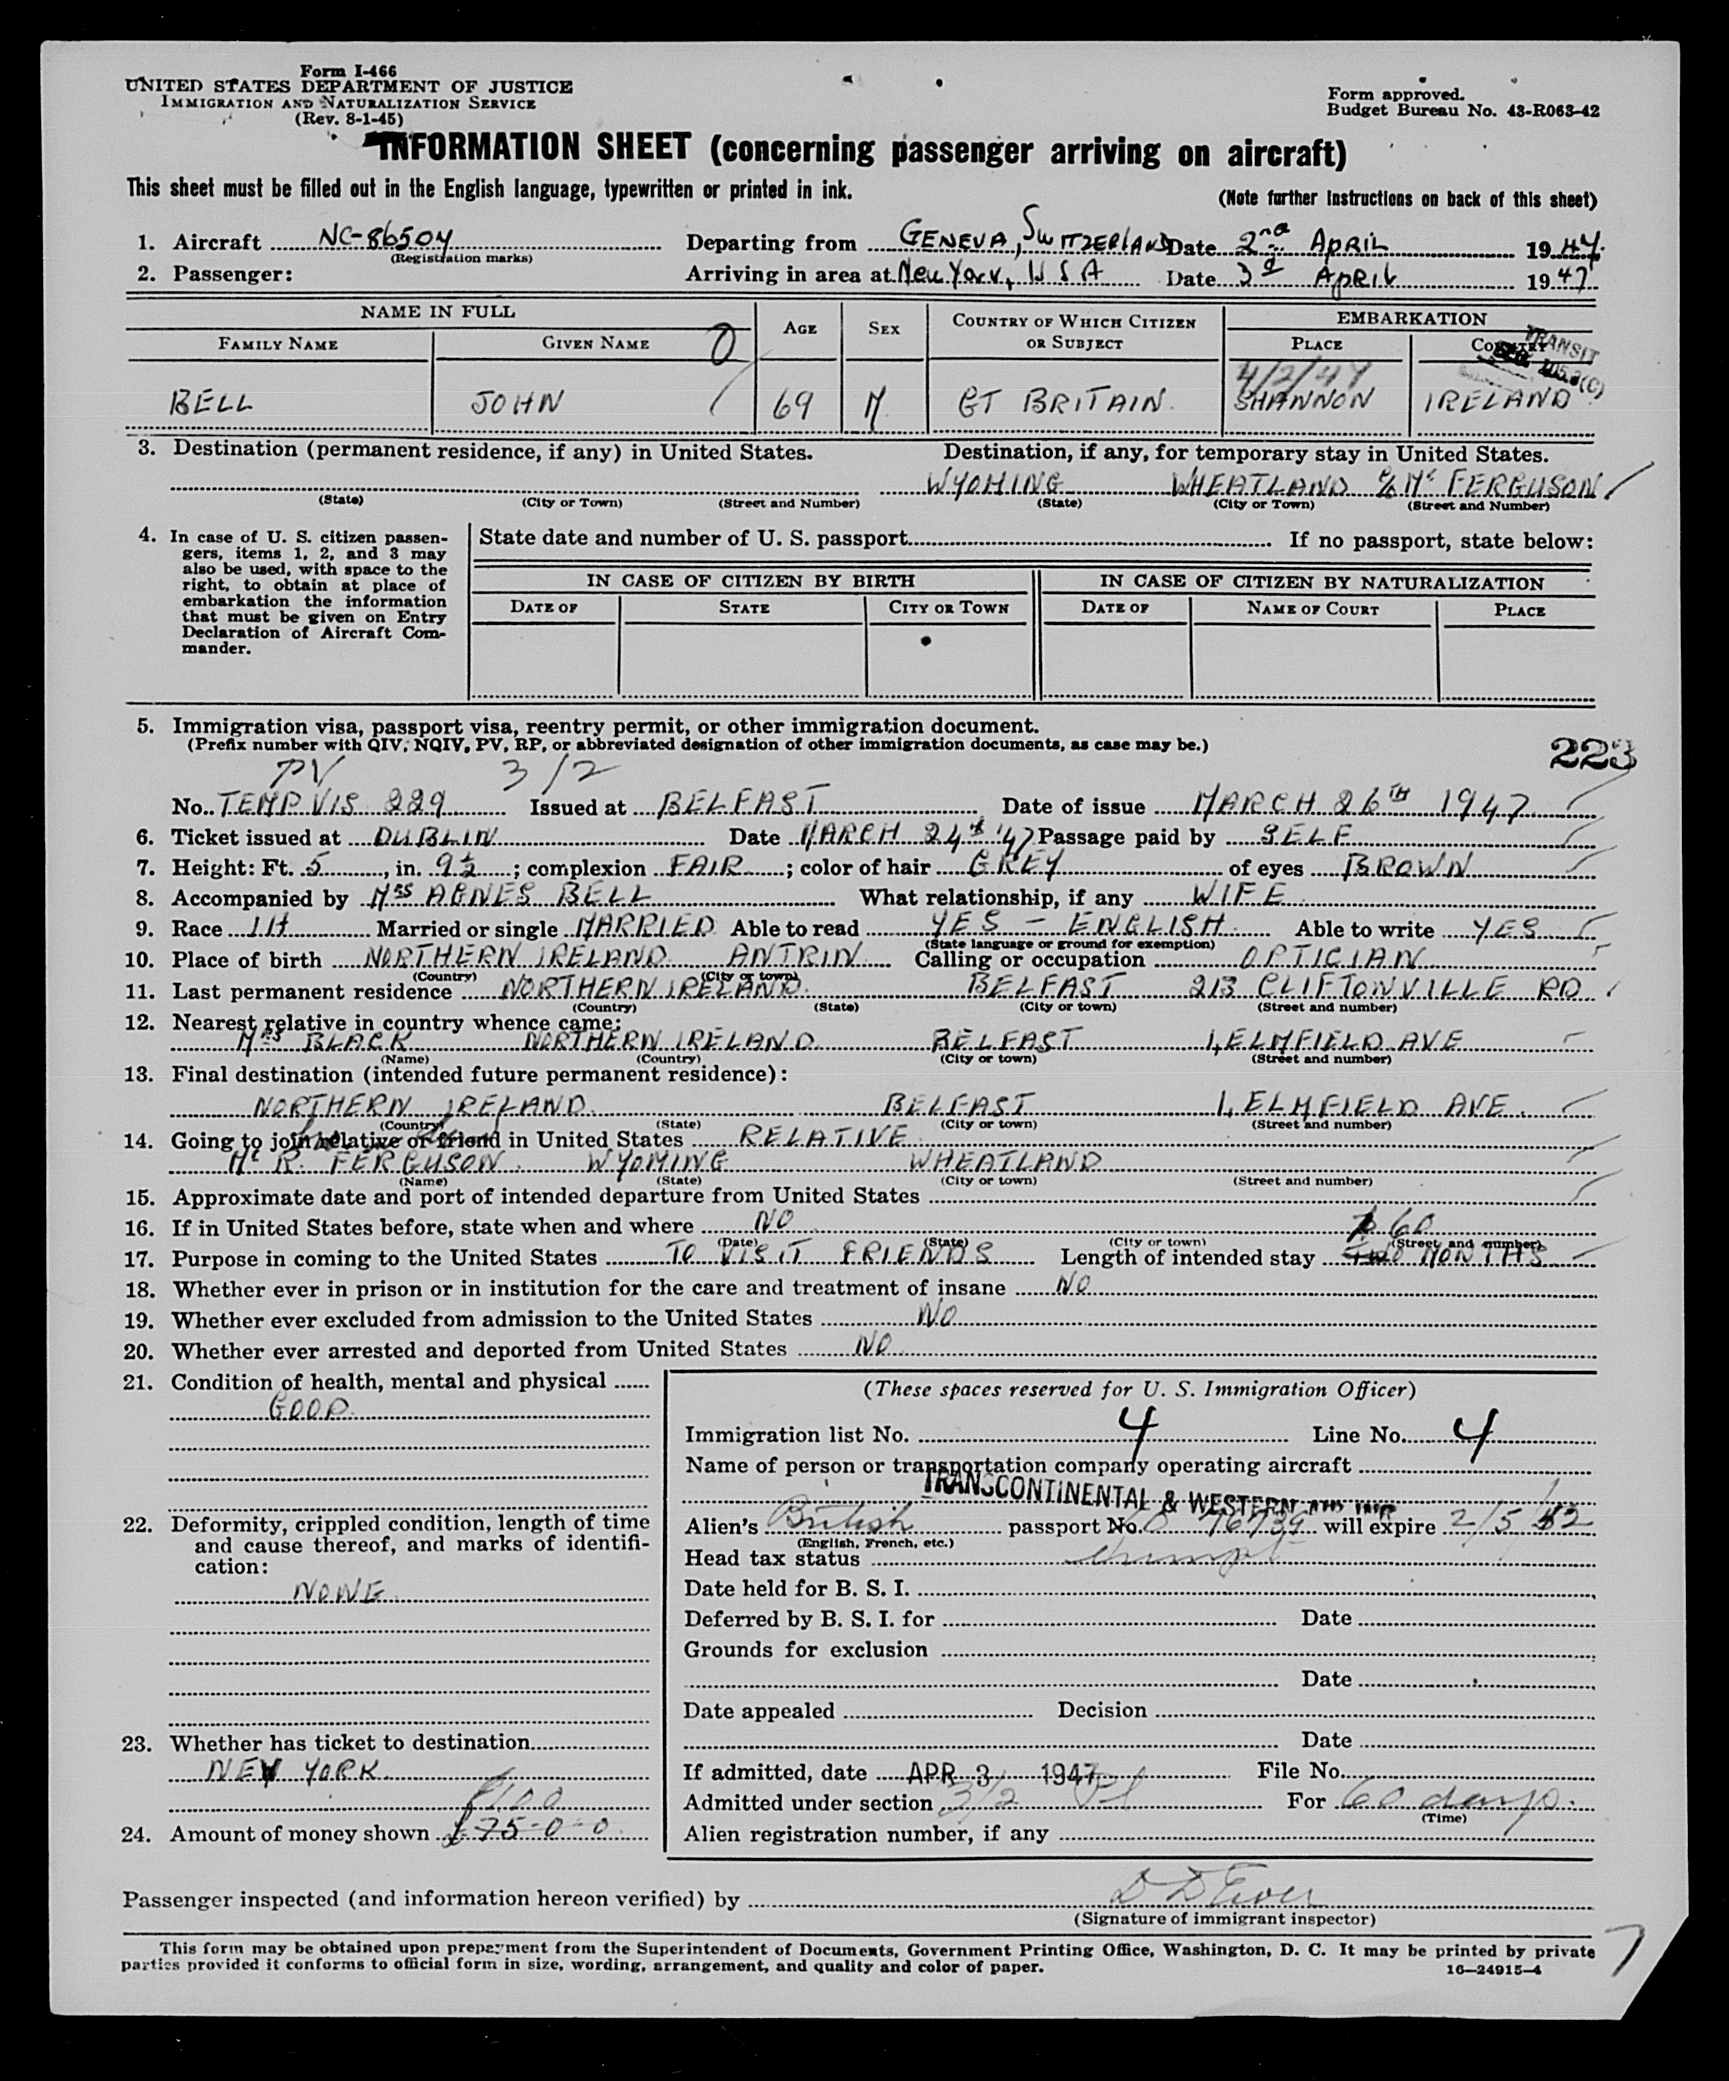 Form I-466
UNITED STATES DEPARTMENT OF JUSTICE
IMMIGRATION AND NATURALIZATION SERVICE
(Rev. 8-1-45)
Form approved.
Budget Bureau No. 43-R063-42
INFORMATION SHEET (concerning passenger arriving on aircraft)
This sheet must be filled out in the English language, typewritten or printed in ink. (Note further instructions on back of this sheet)
1. Aircraft NC-86504 Departing from GENEVA, SWITZERLAND Date 2nd APRIL 1947.
(Registration marks)
2. Passenger: Arriving in area at New York, USA Date 3d APRIL 1947
NAME IN FULL AGE SEX COUNTRY OF WHICH CITIZEN OR SUBJECT EMBARKATION
FAMILY NAME GIVEN NAME PLACE COUNTRY
TRANSIT
4/2/47
BELL JOHN 69 M GT BRITAIN. SHANNON IRELAND
3. Destination (permanent residence, if any) in United States. Destination, if any, for temporary stay in United States.
WYOMING WHEATLAND c/o Mr FERGUSON
(State) (City or Town) (Street and Number) (State) (City or Town) (Street and Number)
4. In case of U. S. citizen passengers, items 1, 2, and 3 may also be used, with space to the right, to obtain at place of embarkation the information that must be given on Entry Declaration of Aircraft Commander.
State date and number of U. S. passport If no passport, state below:
IN CASE OF CITIZEN BY BIRTH IN CASE OF CITIZEN BY NATURALIZATION
DATE OF STATE CITY OR TOWN DATE OF NAME OF COURT PLACE
5. Immigration visa, passport visa, reentry permit, or other immigration document.
(Prefix number with QIV, NQIV, PV, RP, or abbreviated designation of other immigration documents, as case may be.)
223
PV 3/2
No. TEMP VIS 229 Issued at BELFAST Date of issue MARCH 26TH 1947
6. Ticket issued at DUBLIN Date MARCH 24th '47 Passage paid by SELF
7. Height: Ft. 5, in. 9½; complexion FAIR; color of hair GREY of eyes BROWN
8. Accompanied by Mrs AGNES BELL What relationship, if any WIFE
9. Race Married or single MARRIED Able to read YES - ENGLISH Able to write YES
(State language or ground for exemption)
10. Place of birth NORTHERN IRELAND ANTRIN Calling or occupation OPTICIAN
(Country) (City or town)
11. Last permanent residence NORTHERN IRELAND. BELFAST 213 CLIFTONVILLE RD
(Country) (State) (City or town) (Street and number)
12. Nearest relative in country whence came:
Mrs BLACK NORTHERN IRELAND BELFAST 1, ELMFIELD AVE
(Name) (Country) (City or town) (Street and number)
13. Final destination (intended future permanent residence):
NORTHERN IRELAND. BELFAST 1, ELMFIELD AVE.
(Country) (State) (City or town) (Street and number)
14. Going to join relative or friend in United States RELATIVE
Mr R. FERGUSON. WYOMING WHEATLAND
(Name) (State) (City or town) (Street and number)
15. Approximate date and port of intended departure from United States
16. If in United States before, state when and where NO
(Date) (State) (City or town) (Street and number)
60
17. Purpose in coming to the United States TO VISIT FRIENDS Length of intended stay TWO MONTHS
18. Whether ever in prison or in institution for the care and treatment of insane NO
19. Whether ever excluded from admission to the United States NO
20. Whether ever arrested and deported from United States NO
21. Condition of health, mental and physical
GOOD.
22. Deformity, crippled condition, length of time and cause thereof, and marks of identification:
NONE
23. Whether has ticket to destination
NEW YORK
$100
24. Amount of money shown £75-0-0
(These spaces reserved for U. S. Immigration Officer)
Immigration list No. 4 Line No. 4
Name of person or transportation company operating aircraft
TRANSCONTINENTAL & WESTERN AIR INC
Alien's British passport No. 76739 will expire 2/5/52
(English, French, etc.)
Head tax status exempt
Date held for B. S. I.
Deferred by B. S. I. for Date
Grounds for exclusion
Date
Date appealed Decision
Date
If admitted, date APR 3 1947 File No.
Admitted under section 3/2 For 60 days.
(Time)
Alien registration number, if any
Passenger inspected (and information hereon verified) by
(Signature of immigrant inspector)
This form may be obtained upon prepayment from the Superintendent of Documents, Government Printing Office, Washington, D. C. It may be printed by private
parties provided it conforms to official form in size, wording, arrangement, and quality and color of paper. 16-24915-4
7